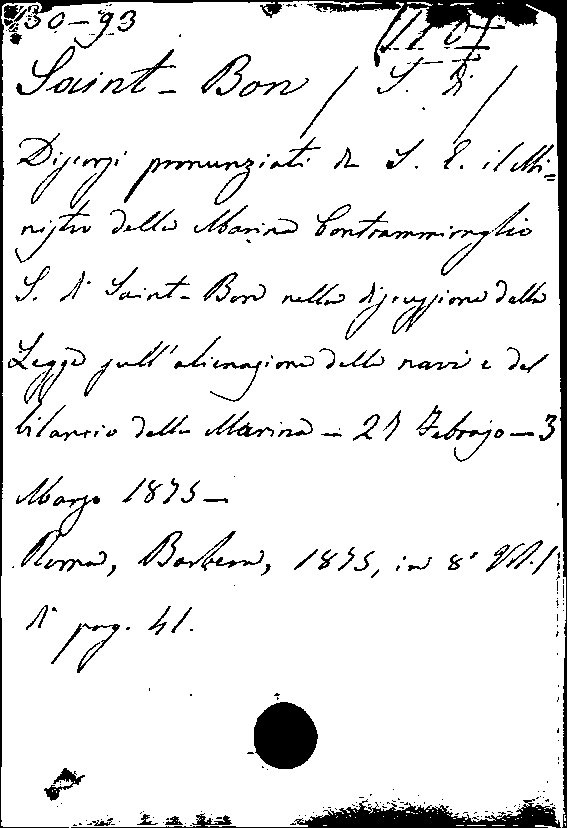 130-93
Saint-Bon / S. di /
Discorsi pronunziati da S. E. il Mi=
nistro della Marina Contrammiraglio
S. di Saint-Bon nella discussione della
Legge sull'alienazione delle navi e del
bilancio della Marina — 27 Febrajo — 3
Marzo 1875 —
Roma, Barbera, 1875, in 8° Vol. 1
di pag. 41.